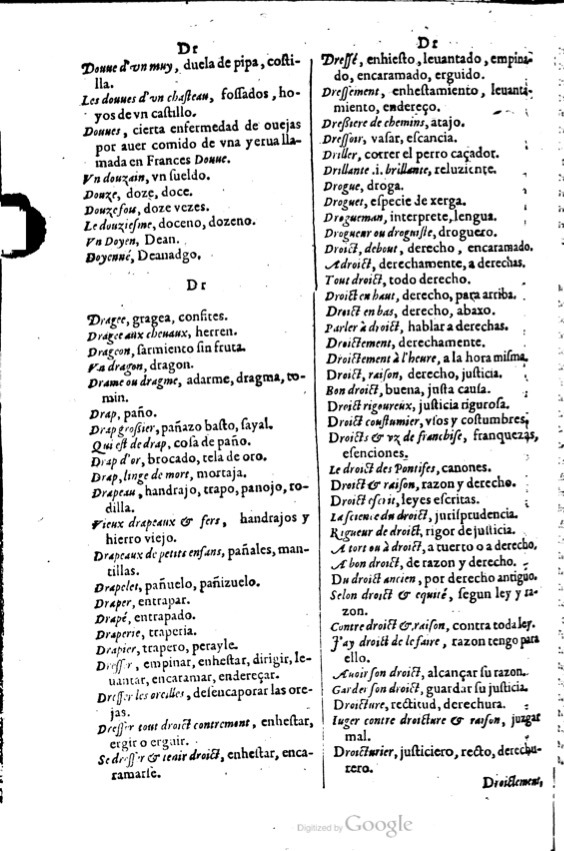 Dr
Douue d'vn muy, duela de pipa, costi-
lla.
Les douues d'vn chasteau, fossados, ho-
yos de vn castillo.
Douues, cierta enfermedad de ouejas
por auer comido de vna yerua lla-
mada en Frances Douue.
Vn douzain, vn sueldo.
Douze, doze, doce.
Douzefou, doze vezes.
Le douziesme, doceno, dozeno.
Vn Doyen, Dean.
Doyenné, Deanadgo.
Dr
Dragee, gragea, confites.
Dragee aux cheuaux, herren.
Drageon, sarmiento sin fruta.
Vn dragon, dragon.
Drame ou dragme, adarme, dragma, to-
min.
Drap, paño.
Drap grossier, pañazo basto, sayal.
Qui est de drap, cosa de paño.
Drap d'or, brocado, tela de oro.
Drap, linge de mort, mortaja.
Drapeau, handrajo, trapo, panojo, ro-
dilla.
Vieux drapeaux & fers, handrajos y
hierro viejo.
Drapeaux de petits enfans, pañales, man-
tillas.
Drapelet, pañuelo, pañizuelo.
Draper, entrapar.
Drapé, entrapado.
Draperie, traperia.
Drapier, trapero, perayle.
Dresser, empinar, enhestar, dirigir, le-
uantar, encaramar, endereçar.
Dresser les oreilles, desencaporar las ore-
jas.
Dresser tout droict contremont, enhestar,
ergir o erguir.
Se dresser & tenir droict, enhestar, enca-
ramarse.
Dr
Dressé, enhiesto, leuantado, empina-
do, encaramado, erguido.
Dressement, enhestamiento, leuanta-
miento, endereço.
Dressiere de chemins, atajo.
Dressoir, vasar, escancia.
Driller, correr el perro caçador.
Drillante .i. brillante, reluziente.
Drogue, droga.
Droguet, especie de xerga.
Drogueman, interprete, lengua.
Drogueur ou droguiste, droguero.
Droict, debout, derecho, encaramado.
A droict, derechamente, a derechas.
Tout droict, todo derecho.
Droict en haut, derecho, para arriba.
Droict en bas, derecho, abaxo.
Parler à droict, hablar a derechas.
Droictement, derechamente.
Droictement à l'heure, a la hora misma.
Droict, raison, derecho, justicia.
Bon droict, buena, justa causa.
Droict rigoureux, justicia rigurosa.
Droict coustumier, vsos y costumbres.
Droicts & vz de franchise, franquezas,
esenciones.
Le droict des Pontifes, canones.
Droict & raison, razon y derecho.
Droict escrit, leyes escritas.
La science du droict, jurisprudencia.
Rigueur de droict, rigor de justicia.
A tort ou à droict, a tuerto o a derecho.
A bon droict, de razon y derecho.
Du droict ancien, por derecho antiguo.
Selon droict & equité, segun ley y ra-
zon.
Contre droict & raison, contra toda ley.
J'ay droict de le faire, razon tengo para
ello.
Auoir son droict, alcançar su razon.
Garder son droict, guardar su justicia.
Droicture, rectitud, derechura.
Iuger contre droicture & raison, juzgar
mal.
Droicturier, justiciero, recto, derechu-
rero.
Droictement,
Digitized by Google